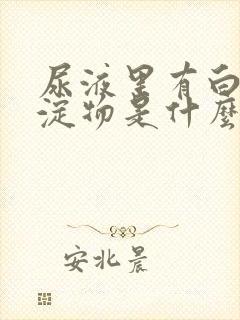 尿液里有白
淀物是什麼
安北晨